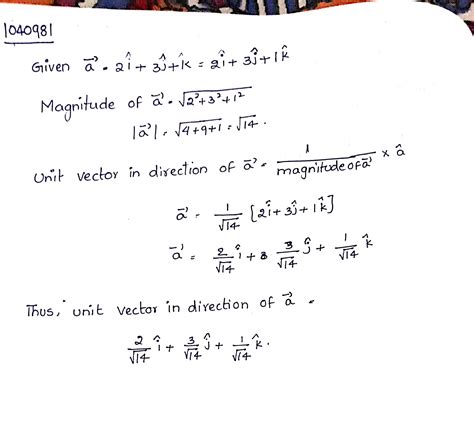 1040981
Given a⃗ = 2î + 3ĵ + k̂ = 2î + 3ĵ + 1k̂
Magnitude of a⃗ = √2²+3²+1²
|a⃗| = √4+9+1 = √14.
Unit vector in direction of a⃗ = 1/magnitude of a⃗ × â
a⃗ = 1/√14 [2î + 3ĵ + 1k̂]
a⃗ = 2/√14 î + 3 3/√14 ĵ + 1/√14 k̂
Thus, unit vector in direction of a⃗ =
2/√14 î + 3/√14 ĵ + 1/√14 k̂.